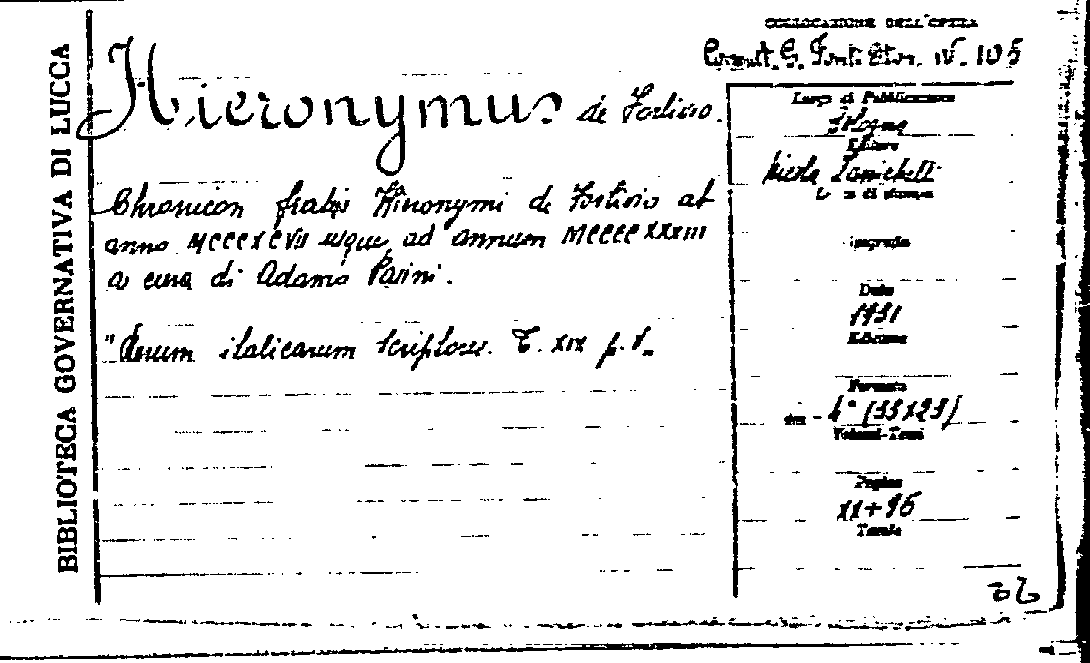 BIBLIOTECA GOVERNATIVA DI LUCCA
COLLOCAZIONE DELL'OPERA
Consult. G. Fonti Stor. IV. 105
Hieronymus de Forlivio.
Chronicon fratris Hieronymi de Forlivio ab
anno MCCCXCVII usque ad annum MCCCCXXXIII
a cura di Adamo Pasini.
"Rerum italicarum Scriptores. T. XIX p. V.
Luogo di Pubblicazione
Bologna
Editore
Nicola Zanichelli
Luogo di stampa
Tipografia
Data
1931
Edizione
Formato
4° (33x23)
Volumi-Tomi
Pagine
XX+96
Tavole